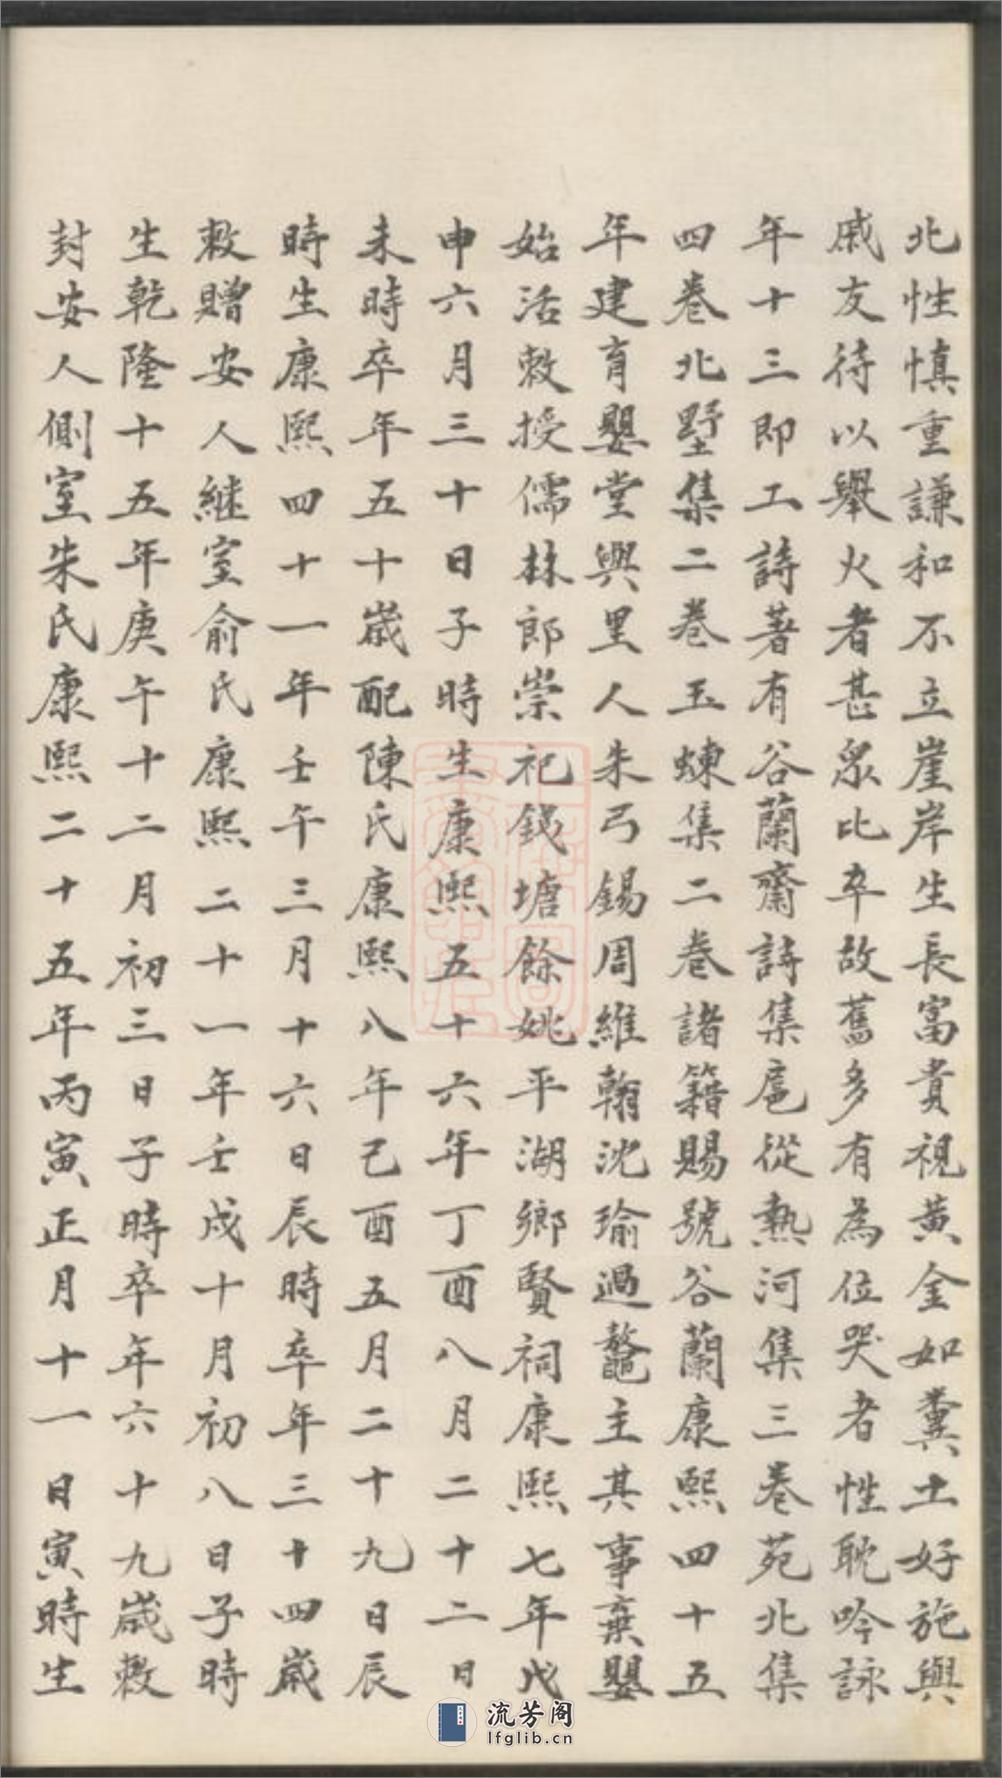 北性慎重謙和不立崖岸生長富貴視黃金如糞土好施與
戚友待以舉火者甚眾比卒故舊多有為位哭者性耽吟詠
年十三即工詩著有谷蘭齋詩集扈從熱河集三卷苑北集
四卷北墅集二卷玉蝀集二卷諸籍賜號谷蘭康熙四十五
年建育嬰堂興里人朱弓錫周維翰沈瑜過鼇主其事棄嬰
始活敕授儒林郎崇祀錢塘餘姚平湖鄉賢祠康熙七年戊
申六月三十日子時生康熙五十六年丁酉八月二十二日
未時卒年五十歲配陳氏康熙八年己酉五月二十九日辰
時生康熙四十一年壬午三月十六日辰時卒年三十四歲
敕贈安人繼室俞氏康熙二十一年壬戌十月初八日子時
生乾隆十五年庚午十二月初三日子時卒年六十九歲敕
封安人側室朱氏康熙二十五年丙寅正月十一日寅時生
流芳阁
lfglib.cn